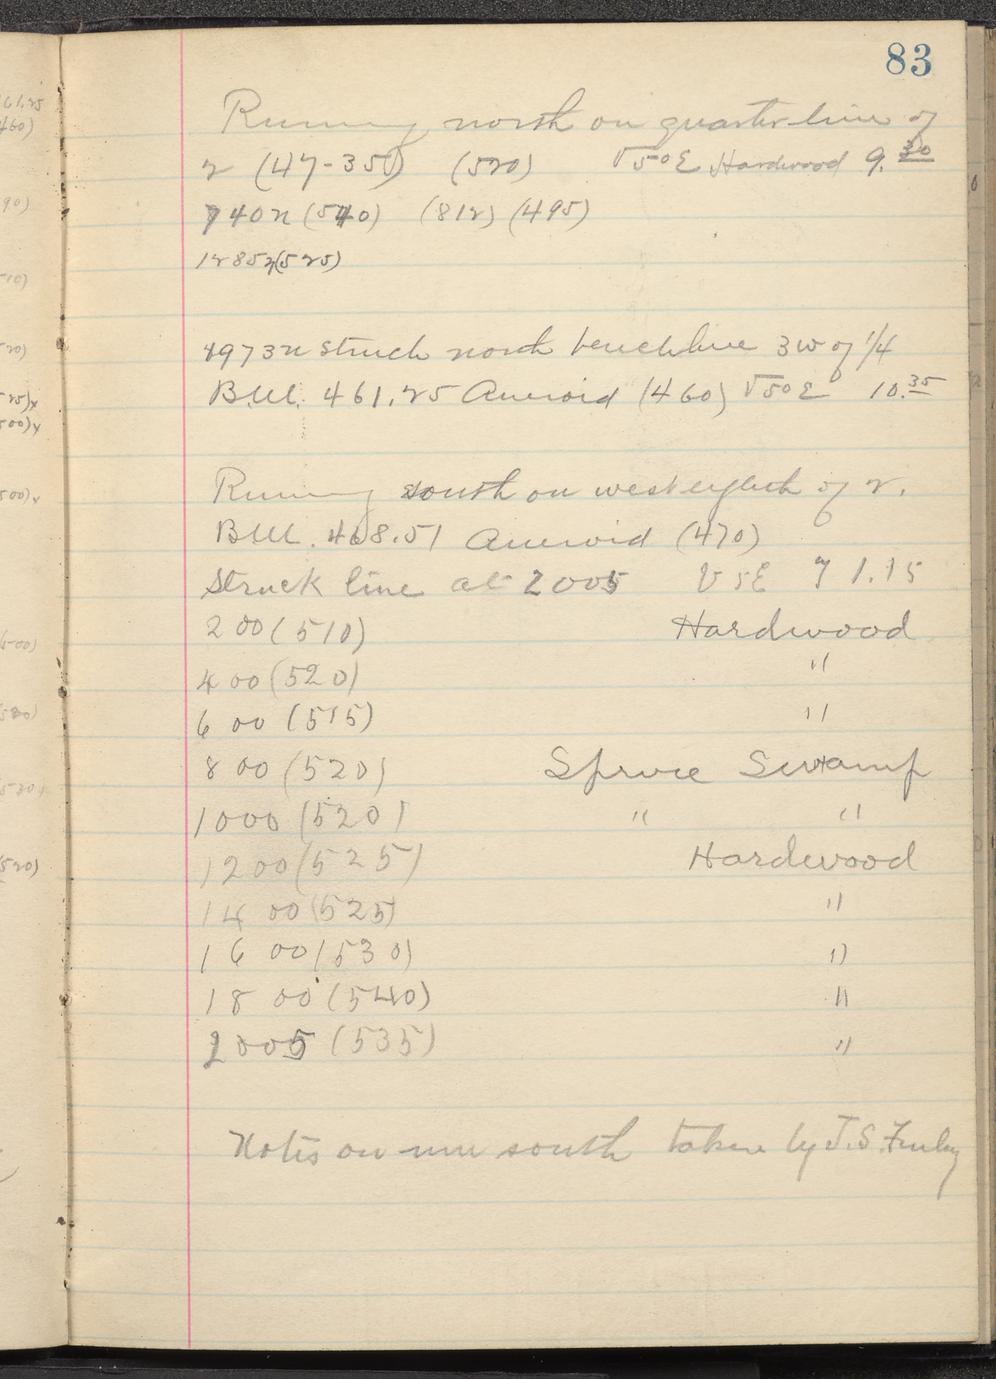 83
Running north on quarter line of
2 (47-35) (520) V 50 E Hardwood 9.30
740 N (540) (812) (495)
1285 N (525)
1973 N struck north bench line 3 W of 1/4
B.M. 461.25 Aneroid (460) V 50 E 10.35
Running south on west eighth of 2.
B.M. 468.51 Aneroid (470)
Struck line at 2005 V 5 E 1.15
200 (510) Hardwood
400 (520) "
600 (515) "
800 (520) Spruce Swamp
1000 (520) " "
1200 (525) Hardwood
1400 (525) "
1600 (530) "
1800 (540) "
2005 (535) "
Notes on run south taken by J.S. Finley